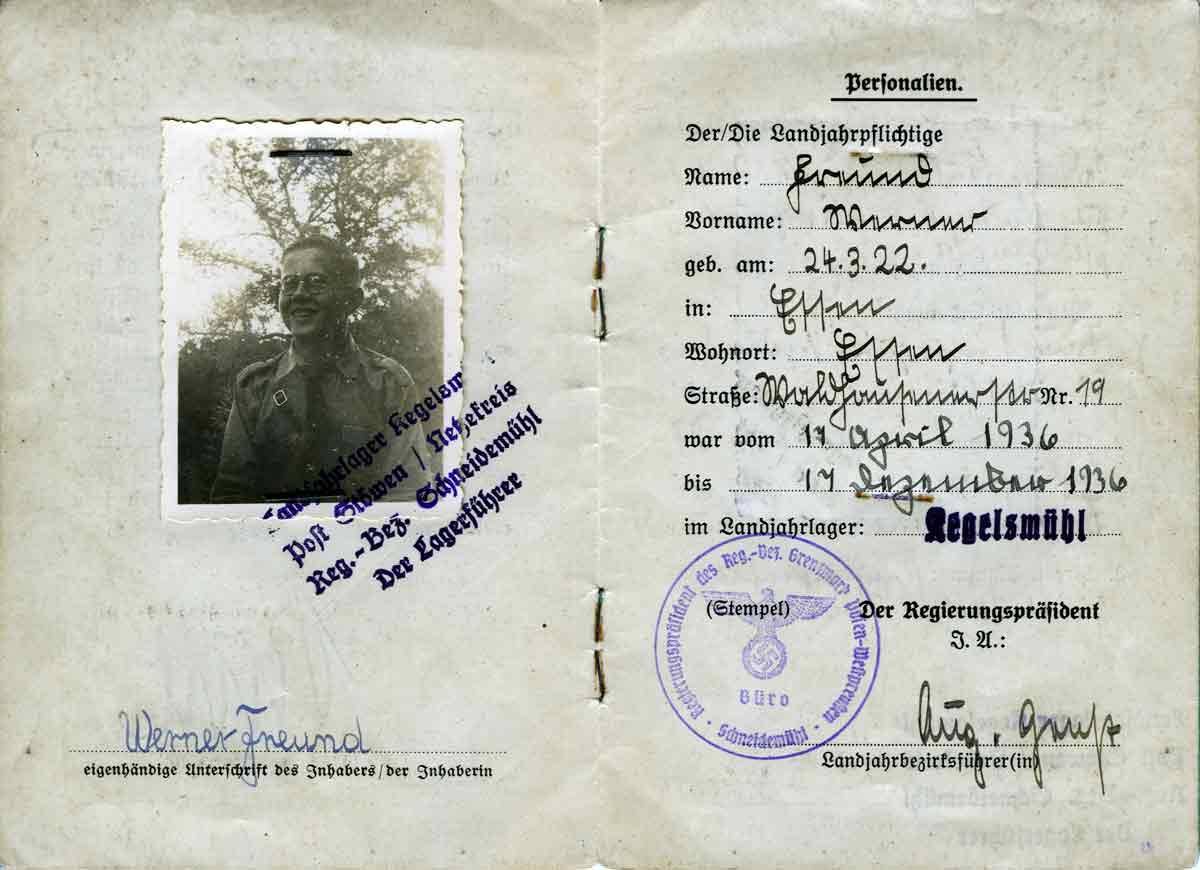 Landjahrlager Kegelsm
Post Stöwen / Netzekreis
Reg.-Bez. Schneidemühl
Der Lagerführer
Werner Freund
eigenhändige Unterschrift des Inhabers/der Inhaberin
Personalien.
Der/Die Landjahrpflichtige
Name: Freund
Vorname: Werner
geb. am: 24.3.22.
in: Essen
Wohnort: Essen
Straße: Waldhausenerstr Nr. 19
war vom 17 April 1936
bis 17 Dezember 1936
im Landjahrlager: Kegelsmühl
(Stempel)
Der Regierungspräsident
I. A.:
Regierungspräsident des Reg.-Bez. Grenzmark Posen-Westpreußen
Büro
Schneidemühl
Aug.
Landjahrbezirksführer(in)